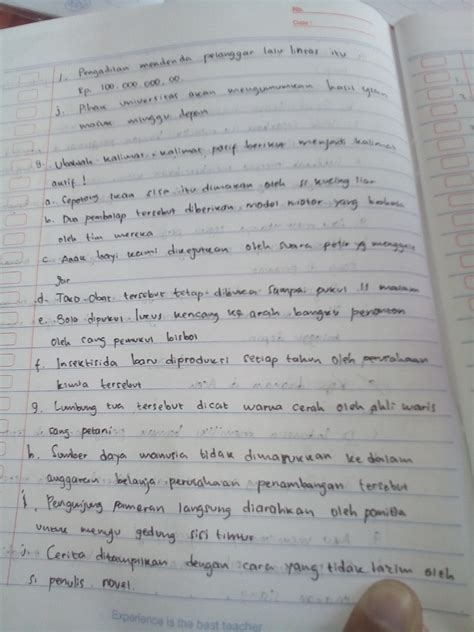 No.
Date :
i. Pengadilan mendenda pelanggar lalu lintas itu
Rp 100.000.000,00
j. Pihak universitas akan mengumumkan hasil ujian
masuk minggu depan
9. Ubahlah kalimat-kalimat pasif berikut menjadi kalimat
aktif!
a. Sepotong ikan sisa itu dimakan oleh si kucing liar
b. Dua pembalap tersebut diberikan model motor yang berbeda
oleh tim mereka
c. Anak bayi kami dikejutkan oleh suara petir yg mengge
gar
d. Toko obat tersebut tetap dibuka sampai pukul 11 malam
e. Bola dipukul lurus kencang ke arah bangku penonton
oleh sang pemukul bisbol
f. Insektisida baru diproduksi setiap tahun oleh perusahaan
kimia tersebut
g. Lumbung tua tersebut dicat warna cerah oleh ahli waris
sang petani
h. Sumber daya manusia tidak dimasukkan ke dalam
anggaran belanja perusahaan penambangan tersebut
i. Pengunjung pameran langsung diarahkan oleh panitia
untuk menuju gedung sisi timur
j. Cerita ditampilkan dengan cara yang tidak lazim oleh
si penulis novel.
Experience is the best teacher